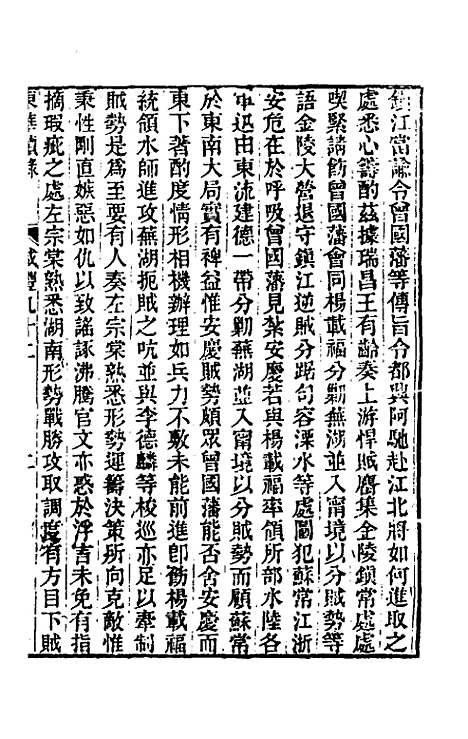 鎮江當諭令曾國藩等傳旨令都興阿馳赴江北將如何進取之
處悉心籌酌茲據瑞昌王有齡奏上游悍賊麕集金陵鎮常處處
喫緊請飭曾國藩會同楊載福分勦蕪湖並入甯境以分賊勢等
語金陵大營退守鎮江逆賊分踞句容溧水等處圖犯蘇常江浙
安危在於呼吸曾國藩見紮安慶若與楊載福率領所部水陸各
軍迅由東流建德一帶分勦蕪湖並入甯境以分賊勢而顧蘇常
於東南大局實有裨益惟安慶賊勢頗眾曾國藩能否舍安慶而
東下著酌度情形相機辦理如兵力不敷未能前進卽飭楊載福
統領水師進攻蕪湖扼賊之吭並與李德麟等梭巡亦足以牽制
賊勢是爲至要有人奏左宗棠熟悉形勢運籌決策所向克敵惟
秉性剛直嫉惡如仇以致謠諑沸騰官文亦惑於浮言未免有指
摘瑕疵之處左宗棠熟悉湖南形勢戰勝攻取調度有方目下賊
東華續錄 咸豐九十二 二